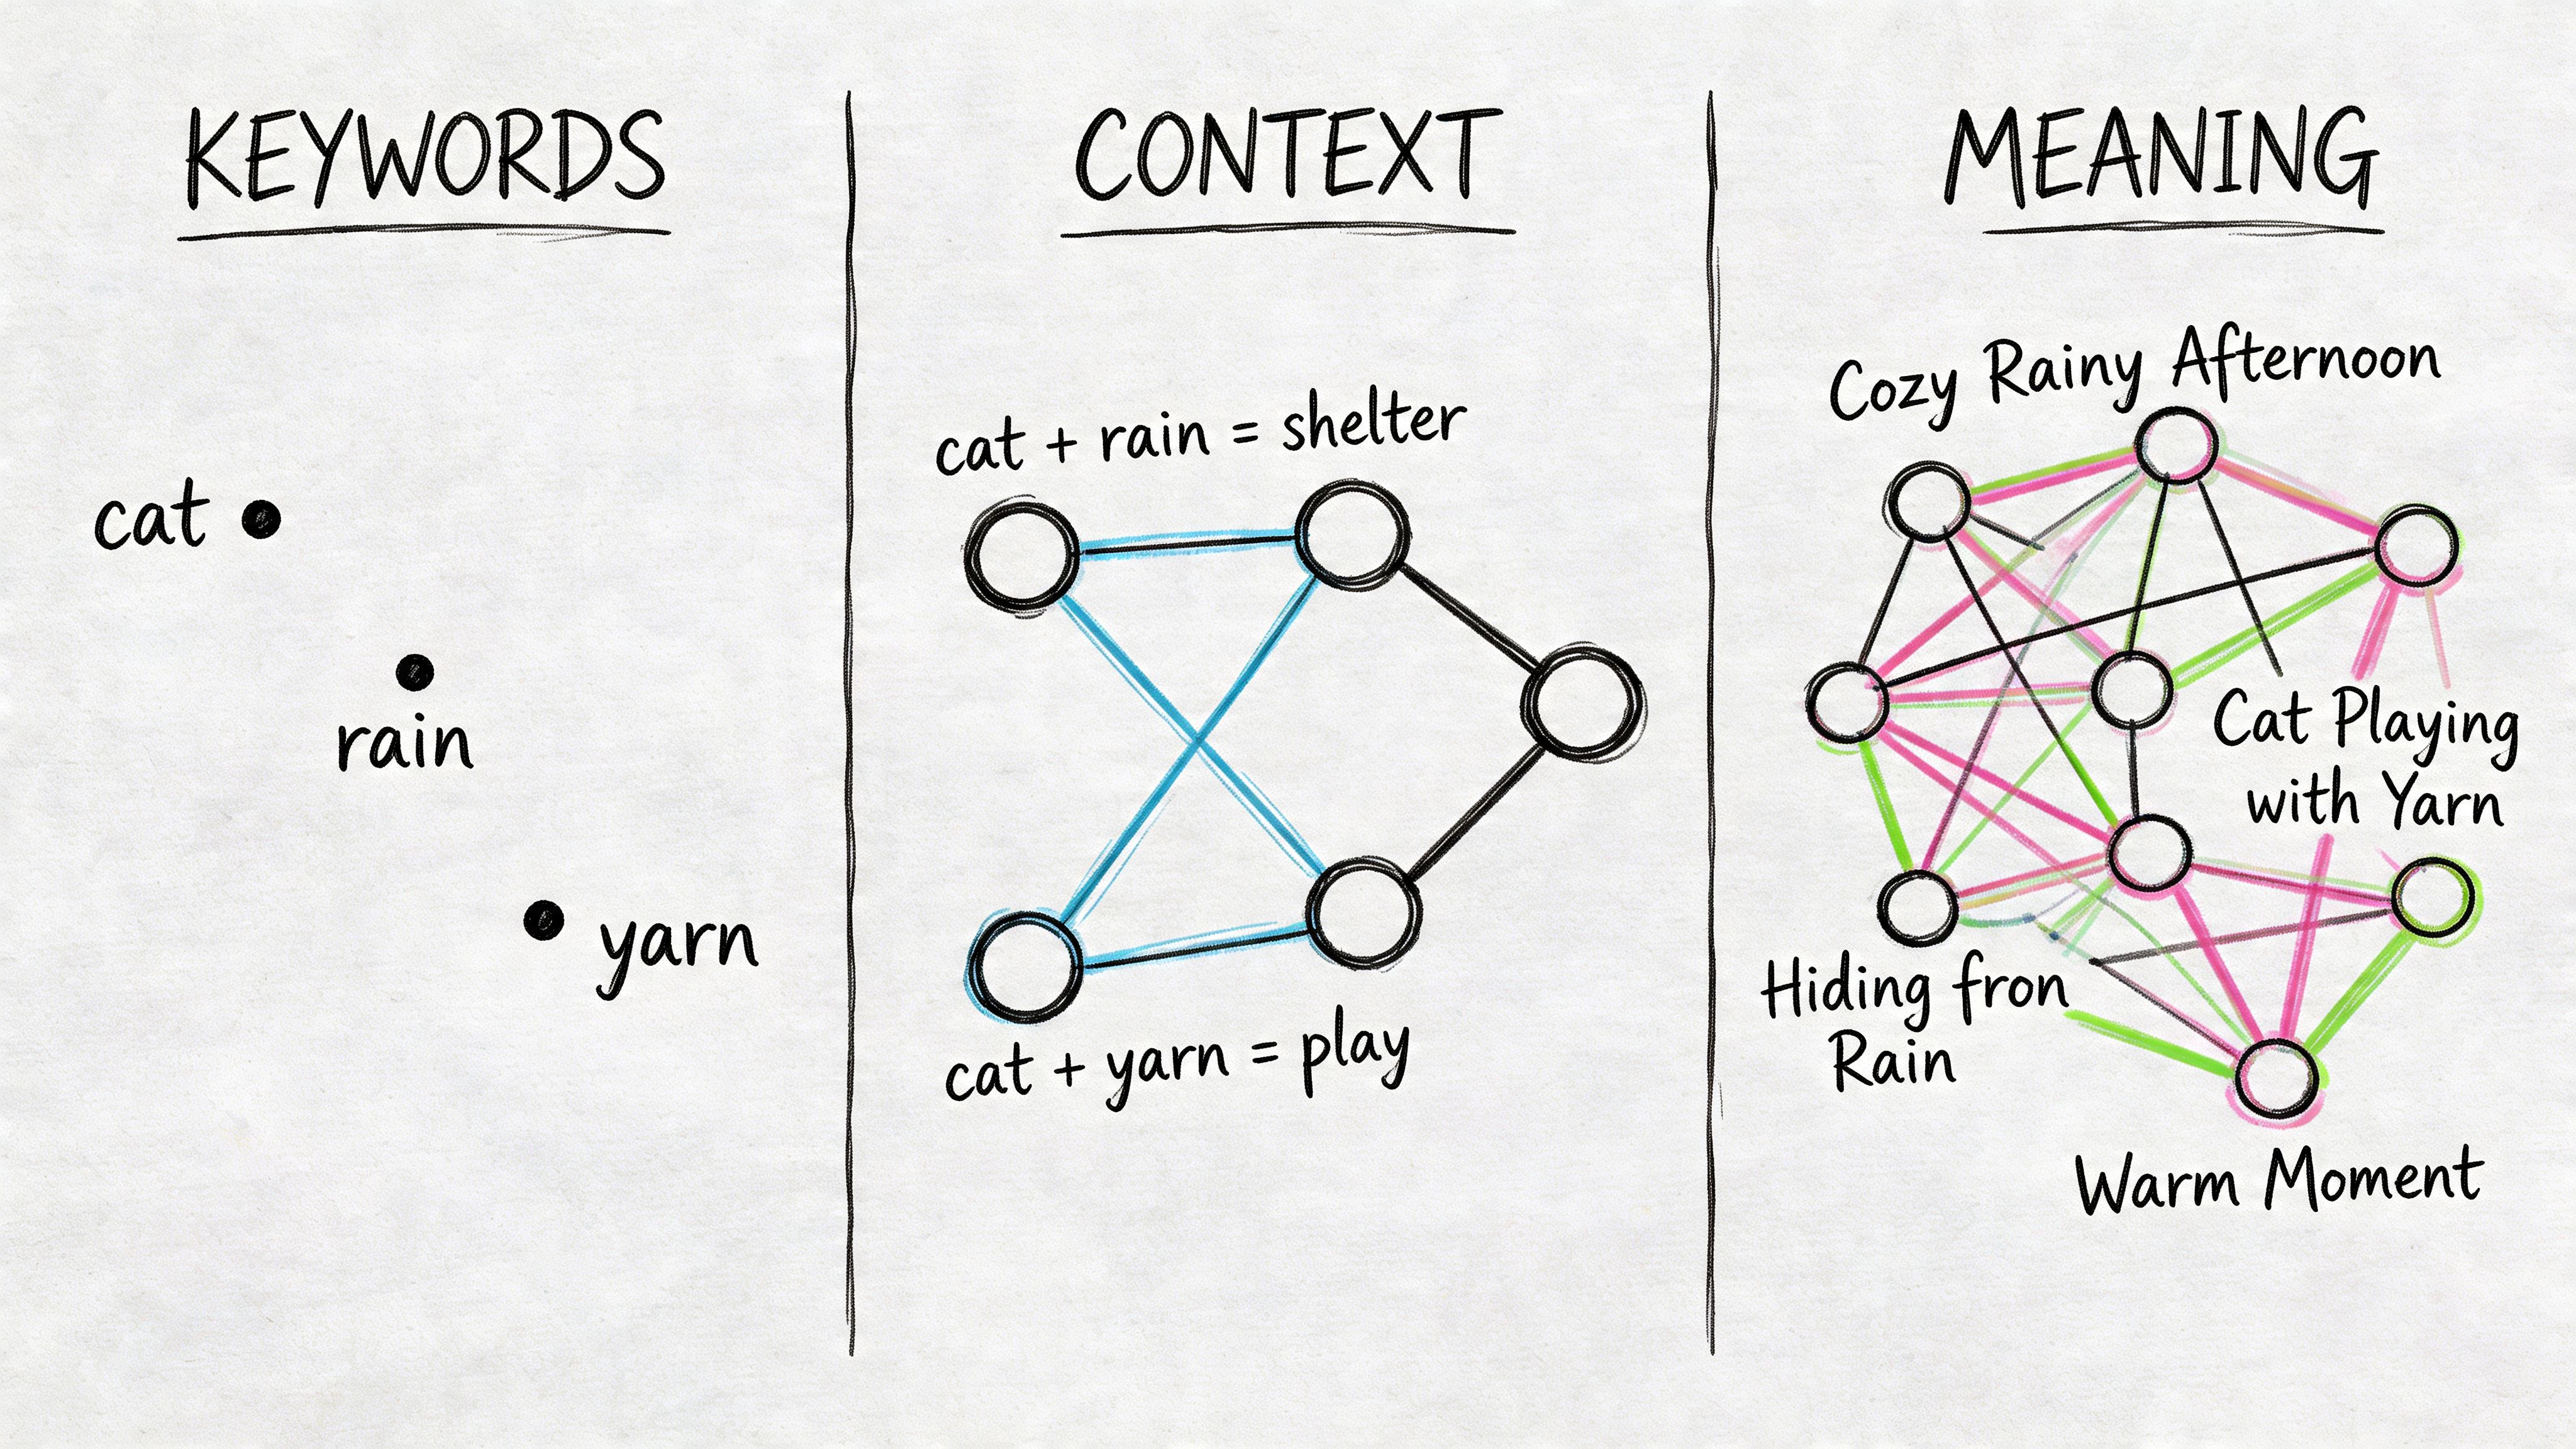 KEYWORDS
cat
rain
yarn
CONTEXT
cat + rain = shelter
cat + yarn = play
MEANING
Cozy Rainy Afternoon
Cat Playing
with Yarn
Hiding fron
Rain
Warm Moment